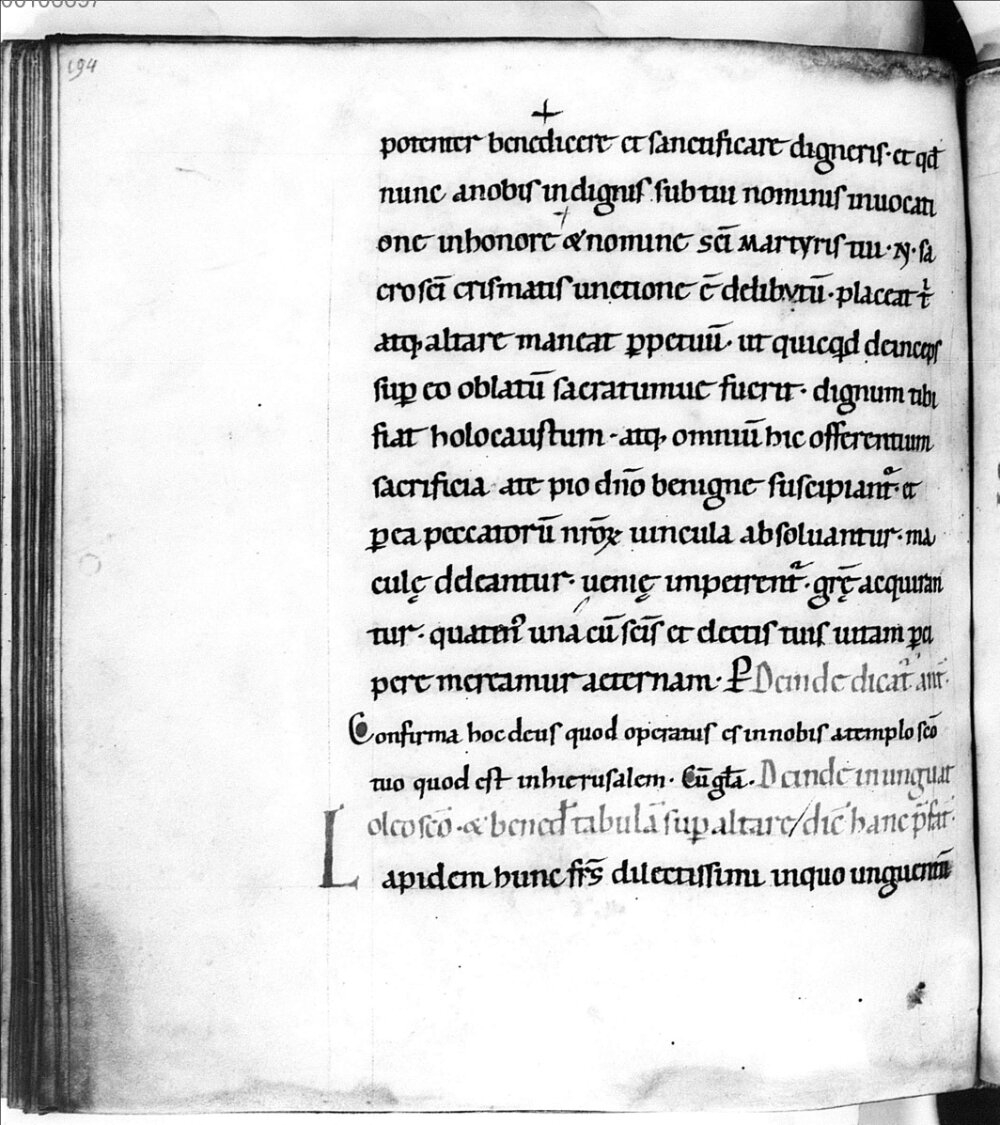 194
potenter benedicere et sanctificare digneris· et qđ
nunc a nobis indignis sub tui nominis inuocati
one in honore & nomine sc̄i martyris tui· N· sa
cro sc̄i crismatis unctione ē delibutū· placeat t̄
atq; altare maneat ꝑpetuū· ut quicq̇d deinceps
suꝑ eo oblatū sacratumue fuerit· dignum tibi
fiat holocaustum· atq; omniū hic offerentium
sacrificia a te pio dn̄o benigne suscipiant᷑· et
ꝑ ea peccatorū nr̄oꝝ uincula absoluantur· ma
culę deleantur· uenię impetrent᷑· gr̄ę acquiran
tur· quatin᷒ una cū sc̄is et electis tuis uitam ꝑci
pere mereamur aeternam· P̱ Deinde dicat᷑ ant̄·
Confirma hoc deus quod operatus es in nobis a templo sc̄o
tuo quod est in hierusalem· Cū gła· Deinde inunguat
oleo sc̄o· & bened̄ tabulā suꝑ altare/ dic̄ hanc p̄fat̄·
Lapidem hunc fr̄s dilectissimi in quo unguentū